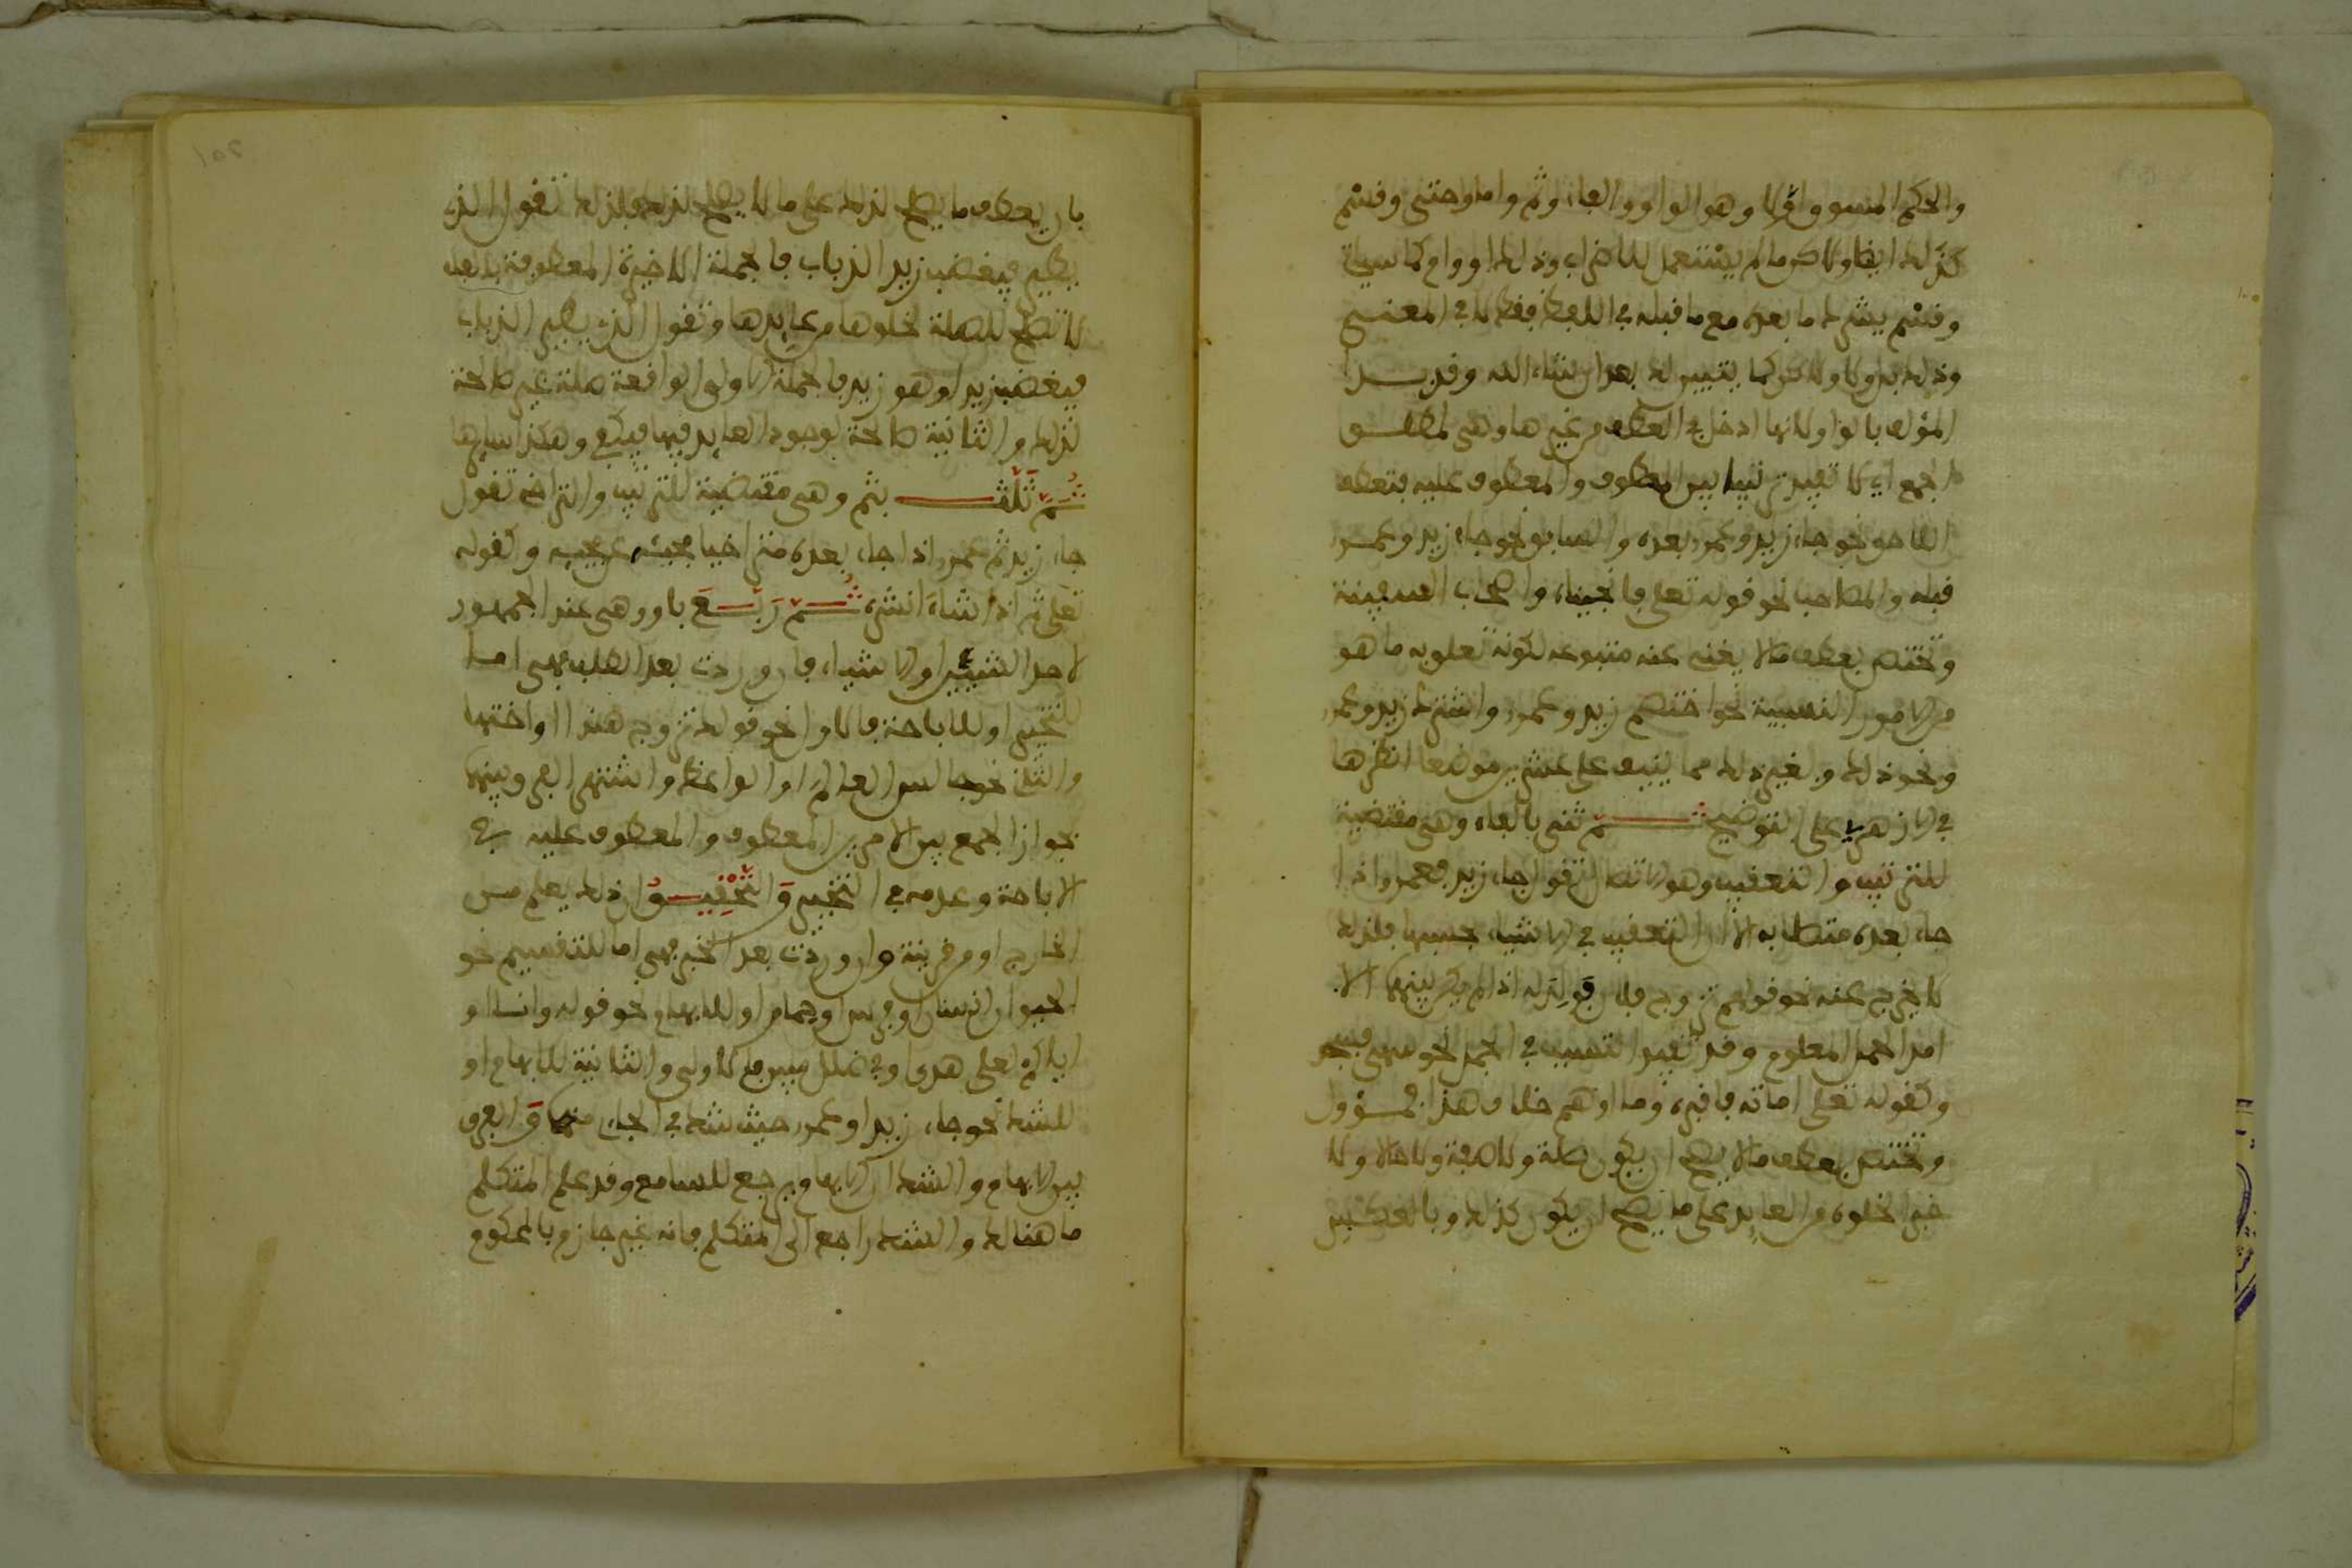 والحكم المنسوق او لا وهو الواو والفاء وثم واما وحتى وقسم
كذلك ايضا ولاكن ما لم يستعمل للاضراب وذلك او وام كما سياتي
وقسم يشرك ما بعده مع ما قبله في اللفظ فقط لا في المعنى
وذلك بل ولا ولاكن كما يتبين لك بعد ان شاء الله وقد بدا
المؤلف بالواو لانها ادخل في العطف من غيرها وهي لمطلق
الجمع اي لا تفيد ترتيبا بين المعطوف والمعطوف عليه فتعطف
اللاحق نحو جاء زيد وعمرو بعده والسابق نحو جاء زيد وعمرو
قبله والمصاحب نحو قوله تعلى فانجيناه واصحاب السفينة
وتختص بعطف ما لا يغني عنه متبوعه لكونه تعلق به ما هو
من الامور النسبية نحو اختصم زيد وعمرو واشترك زيد وعمرو
ونحو ذلك وبغير ذلك مما ينيف على عشرين موضعا انظرها
في الازهري على التوضيح ثم ثنى بالفاء وهي مقتضية
للترتيب والتعقيب وهو الاتصال تقول جاء زيد فعمرو اذا
جاء بعده متصلا به الا ان التعقيب في الاشياء بحسبها فلذلك
لا يخرج عنه نحو قولهم تزوج فلان فولد له اذا لم يكن بينهما الا
امد الحمل المعلوم وقد تفيد التسبب في الجمل نحو سهى فسجد
وكقوله تعلى اماته فاقبره وما اوهم خلاف هذا فمؤول
وتختص بعطف ما لا يصح ان يكون صلة ولا صفة ولا حالا ولا
خبرا لخلوه من العايد على ما يصح ان يكون كذلك وبالعكس
بان يعطف ما يصح لذلك على ما لا يصح لذلك فلذلك تقول الذي
يطير فيغضب زيد الذباب فالجملة الاخيرة المعطوفة بالفاء
لا تصلح للصلة لخلوها من عايدها وتقول الذي يطير الذباب
فيغضب زيدا وهو زيد فالجملة الاولى الواقعة صلة غير صالحة
لذلك والثانية صالحة لوجود العايد فيها فيكفي وهكذا سايرها
ثم ثلث بثم وهي مقتضية للترتيب والتراخي تقول
جاء زيد ثم عمرو اذا جاء بعده متراخيا مجيئه عن مجيئه وكقوله
تعلى ثم اذا شاء انشره ثم ربع باو وهي عند الجمهور
لاحد الشيئين او الاشياء فان وردت بعد الطلب فهي اما
للتخيير او للاباحة فالاول نحو قولك تزوج هندا او اختها
والثاني نحو جالس العالم او الواعظ واشتهر الفرق بينهما
بجواز الجمع بين الامرين المعطوف والمعطوف عليه في
الاباحة وعدمه في التخيير والتحقيق ان ذلك يعلم من
الخارج او من قرينة وان وردت بعد الخبر فهي اما للتقسيم نحو
الحيوان انسان او فرس او حمار او للابهام نحو قوله وانا او
اياكم لعلى هدى او في ضلل مبين فالاولى والثانية للابهام او
للشك نحو جاء زيد او عمرو حيث شك في الجاءي منهما والفرق
بين الابهام والشك ان الابهام يرجع للسامع وقد علم المتكلم
ما هنالك والشك راجع الى المتكلم فانه غير جازم بالحكم